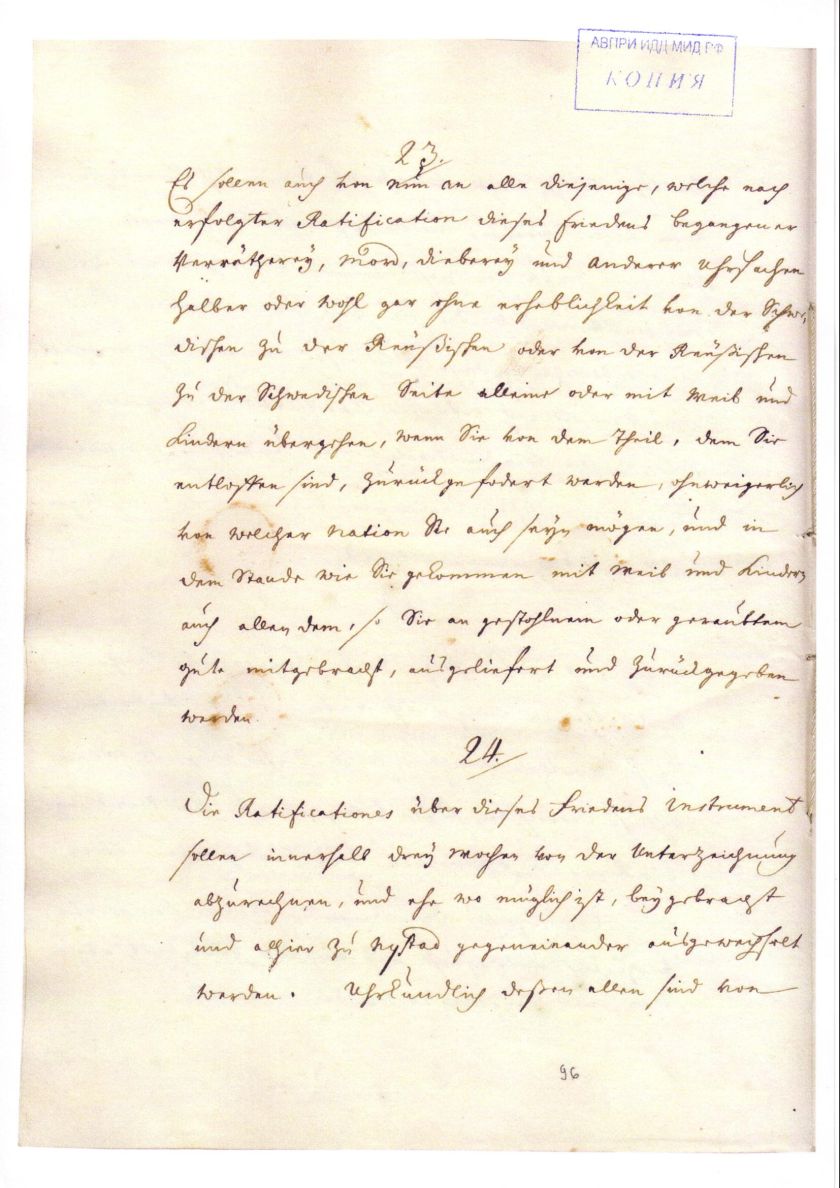 АВПРИ ИДД МИД РФ
КОПИЯ
23.
Es sollen auch von nun an alle diejenige, welche nach
erfolgter Ratification dieses Friedens begangener
Verrätherey, Mord, Dieberey und anderer Uhrsachen
halber oder wohl gar ohne erheblichkeit von der Schwe-
dischen zu der Reußischen oder von der Reußischen
zu der Schwedischen Seite alleine oder mit Weib und
Kindern übergehen, wenn Sie von dem Theil, dem Sie
entloffen sind, zurückgefodert werden, ohnweigerlich
von welcher Nation Sie auch seyn mögen, und in
dem Stande wie Sie gekommen mit Weib und Kindern
auch allen dem, so Sie an gestohlnem oder geraubtem
gute mitgebracht, ausgeliefert und zurückgegeben
werden.
24.
Die Ratificationes über dieses Friedens Instrument
sollen innerhalb drey Wochen von der Unterzeichnung
abzurechnen, und ehe wo müglich ist, beygebracht
und alhier zu Nystad gegeneinander ausgewechselt
werden. Uhrkundlich deßen allen sind von
96